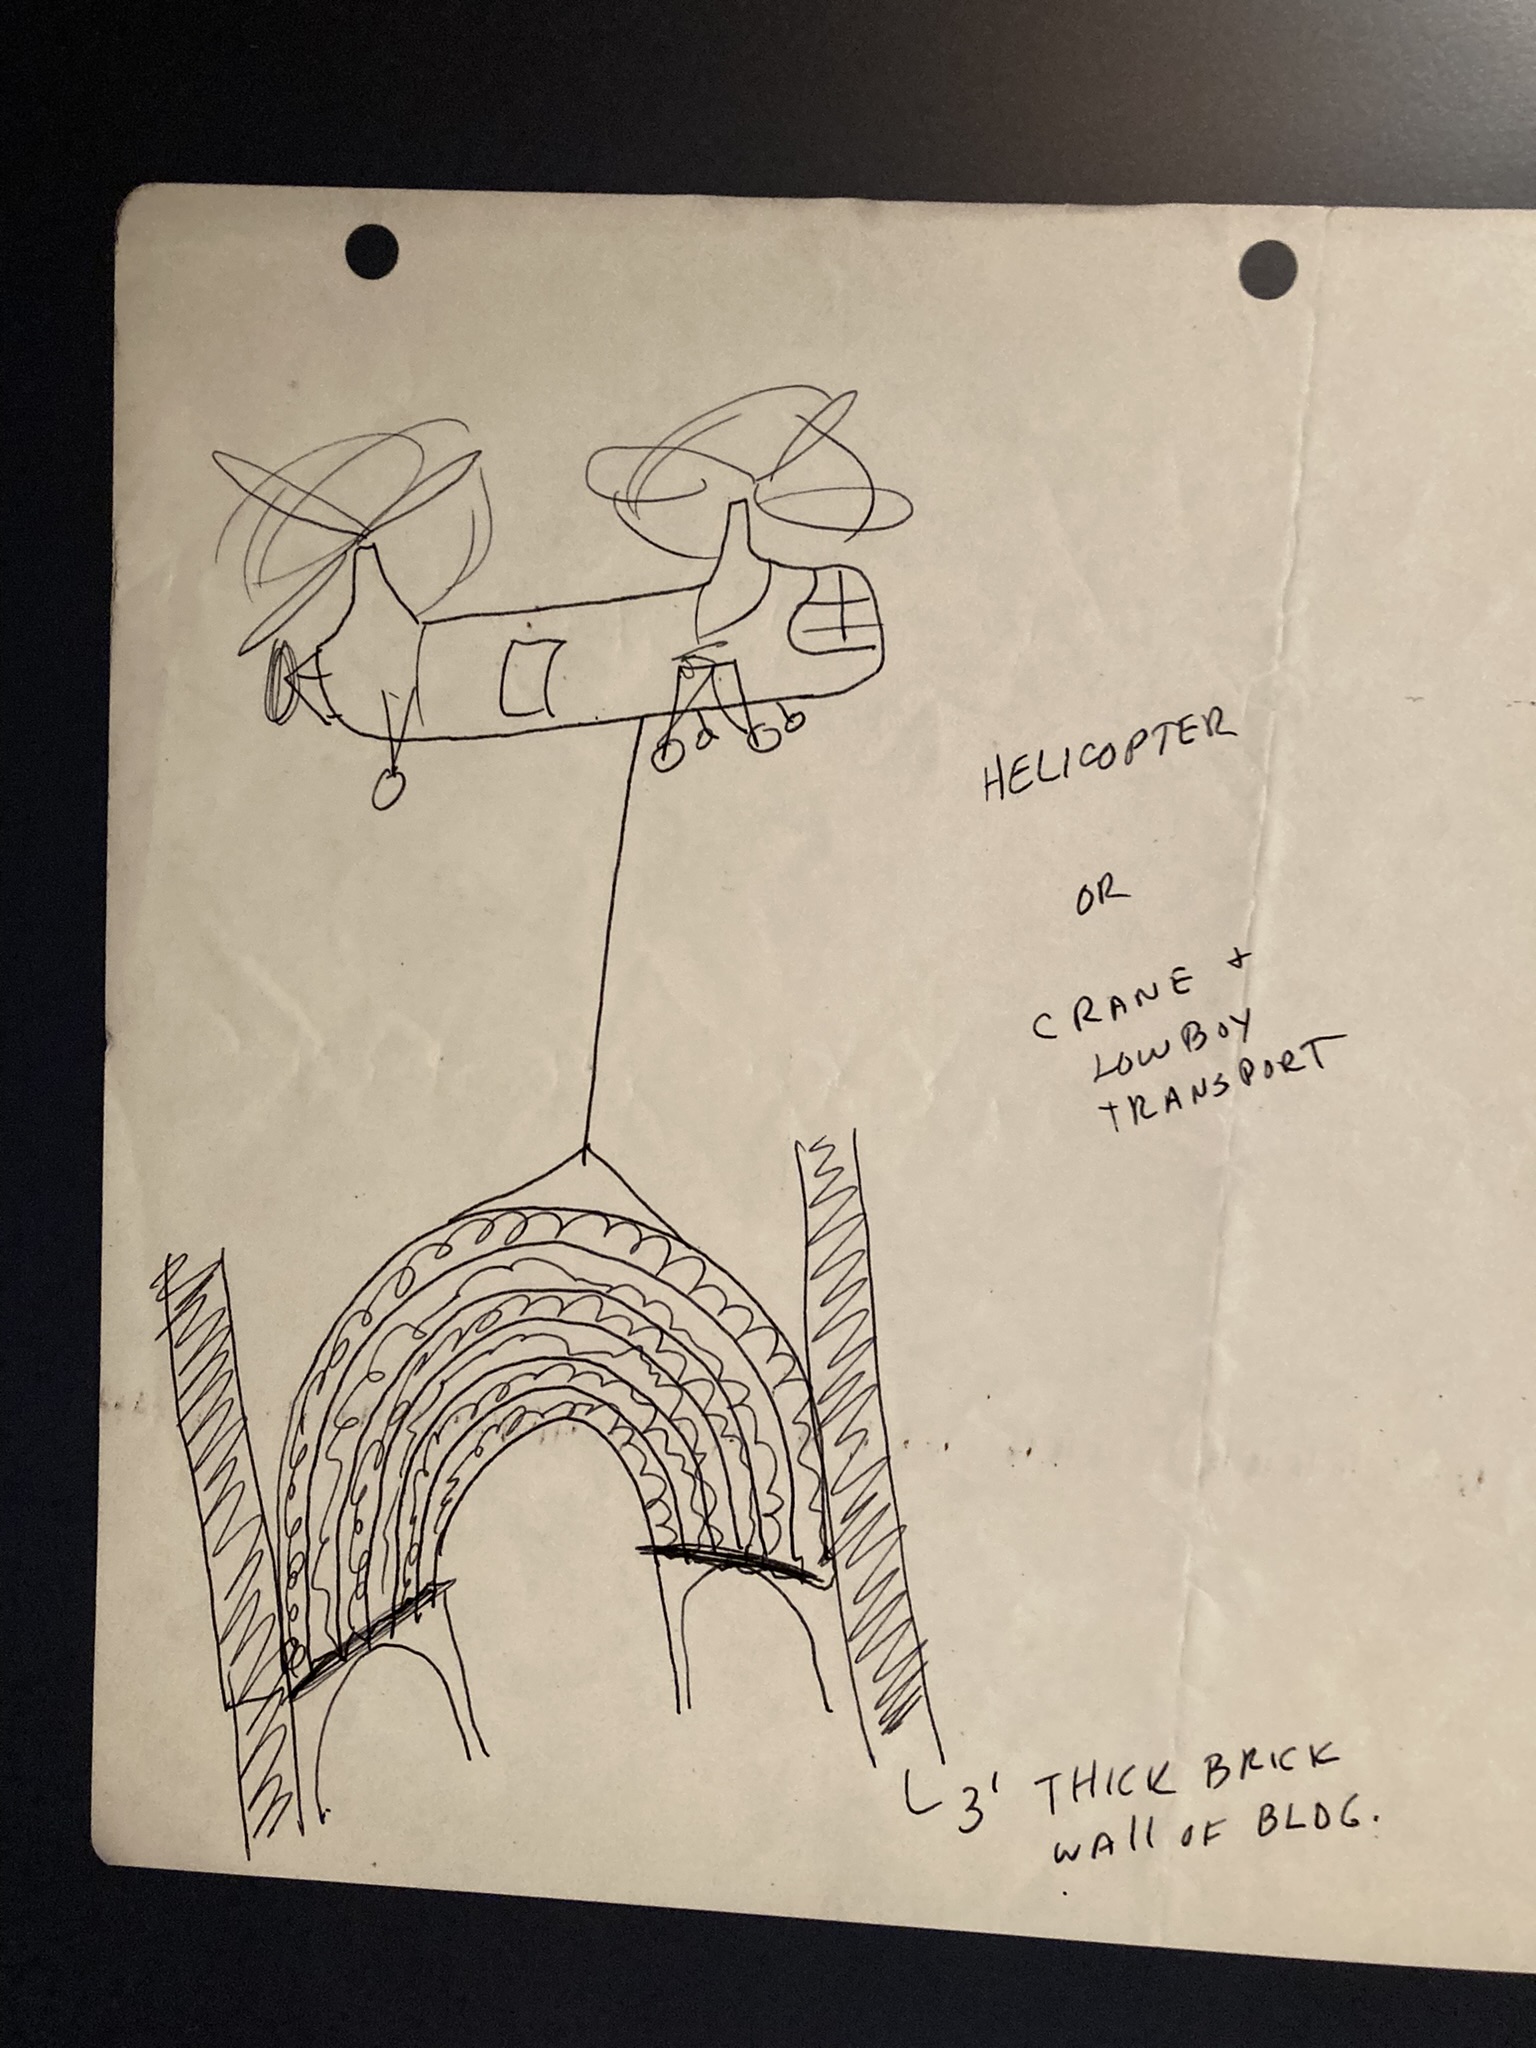 HELICOPTER
OR
CRANE +
LOWBOY
TRANSPORT
3' THICK BRICK
WAll OF BLDG.